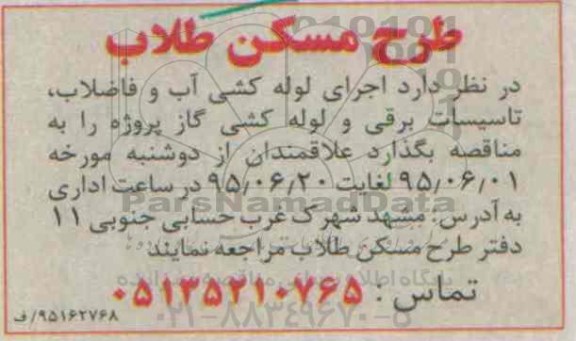 طرح مسکن طلاب
در نظر دارد اجرای لوله کشی آب و فاضلاب،
تاسیسات برقی و لوله کشی گاز پروژه را به
مناقصه بگذارد علاقمندان از دوشنبه مورخه
۹۵٫۰۶٫۰۱ لغایت ۹۵٫۰۶٫۲۰ در ساعت اداری
به آدرس: مشهد شهرک غرب حسابی جنوبی ۱۱
دفتر طرح مسکن طلاب مراجعه نمایند
تماس: ۰۵۱۳۵۲۱۰۷۶۵
۹۵۱۶۲۷۶۸/ف
ParsNamadData
۰۲۱-۸۸۳۴۹۶۷۰-۵